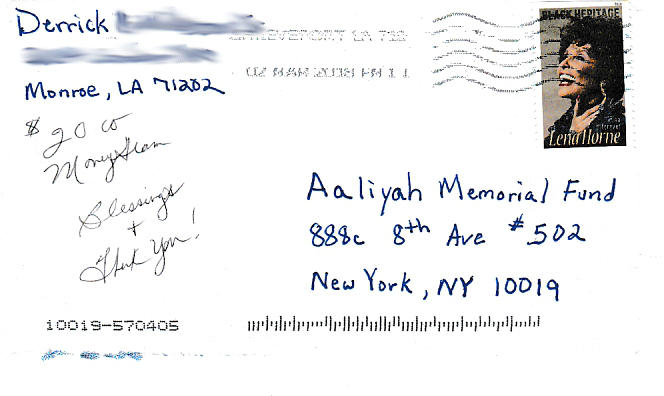 Derrick
SHREVEPORT LA 710
02 MAR 2018 PM 1 L
BLACK HERITAGE
Monroe, LA 71202
$20 00
MoneyGram
Blessings
+
Thank You!
Lena Horne
Aaliyah Memorial Fund
888c 8th Ave #502
New York, NY 10019
10019-570405